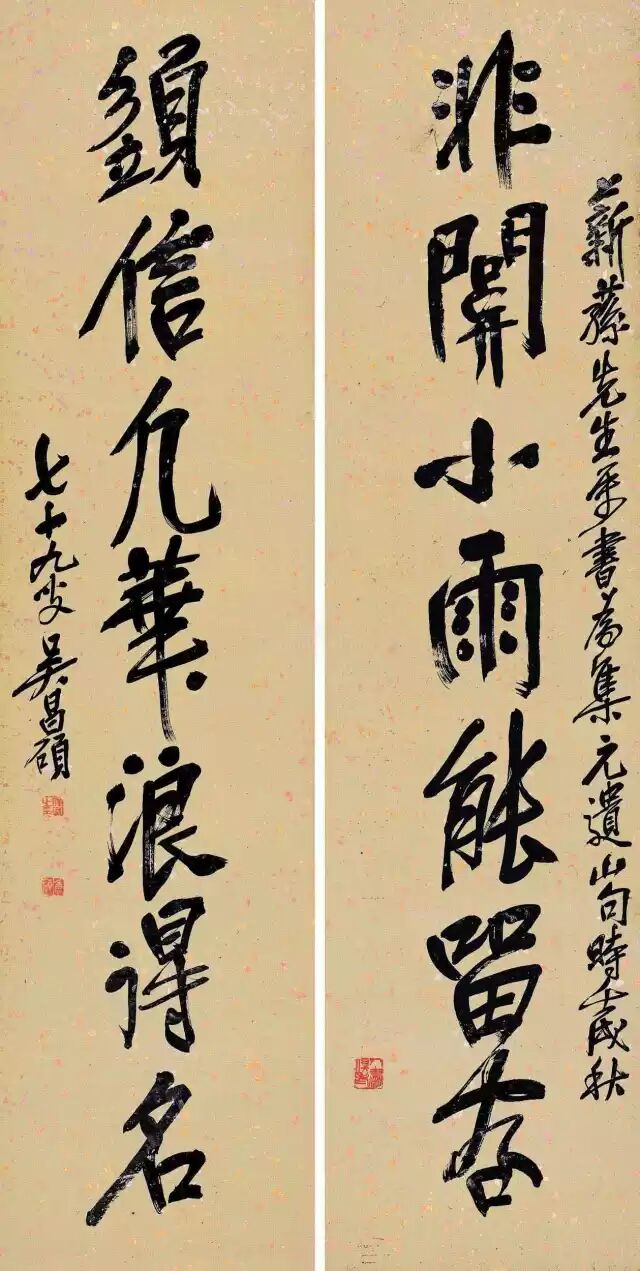 先生
書
集元遺山句時壬戌秋
非關小雨能留客
須信凡華浪得名
七十九叟吳昌碩